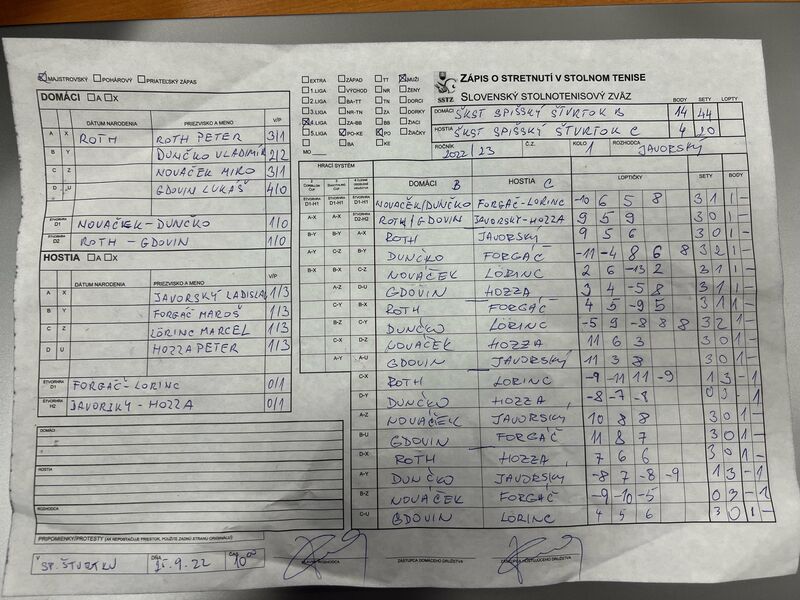 MAJSTROVSKÝ POHÁROVÝ PRIATEĽSKÝ ZÁPAS
DOMÁCI A X
DÁTUM NARODENIA PRIEZVISKO A MENO V/P
A X ROTH ROTH PETER 3/1
B Y DUNČKO VLADIMÍR 2/2
C Z NOVAČEK MIRO 3/1
D U GDOVIN LUKÁŠ 4/0
ŠTVORHRA D1 NOVAČEK-DUNČKO 1/0
ŠTVORHRA D2 ROTH - GDOVIN 1/0
HOSTIA A X
DÁTUM NARODENIA PRIEZVISKO A MENO V/P
A X JAVORSKÝ LADISLAV 1/3
B Y FORGÁČ MAROŠ 1/3
C Z LÖRINC MARCEL 1/3
D U HOZZA PETER 1/3
ŠTVORHRA D1 FORGÁČ-LORINC 0/1
ŠTVORHRA H2 JAVORSKY - HOZZA 0/1
DOMÁCI
HOSTIA
ROZHODCA
PRIPOMIENKY/PROTESTY (AK NEPOSTAČUJE PRIESTOR, POUŽITE ZADNÚ STRANU ORIGINÁLU)
V SP. ŠTVRTKU DŇA 25.9.22 ČAS 10 00
EXTRA ZÁPAD TT MUŽI
1.LIGA VÝCHOD NR ŽENY
2.LIGA BA-TT TN DORCI
3.LIGA NR-TN ZA DORKY
4.LIGA ZA-BB BB ŽIACI
5.LIGA PO-KE PO ŽIAČKY
BA KE
MO
SSTZ
ZÁPIS O STRETNUTÍ V STOLNOM TENISE
SLOVENSKÝ STOLNOTENISOVÝ ZVÄZ
BODY SETY LOPTY
DOMÁCI ŠKST SPIŠSKÝ ŠTVRTOK B 14 44
HOSTIA ŠKST SPIŠSKÝ ŠTVRTOK C 4 20
ROČNÍK 2022/23 Č.Z. KOLO 1 ROZHODCA JAVORSKÝ
HRACÍ SYSTÉM
DOMÁCI B HOSTIA C LOPTIČKY SETY BODY
D1-H1 D1-H1 D1-H1 NOVAČEK/DUNČKO FORGÁČ-LORINC -10 6 5 8 3 1 1 -
A-X A-X D2-H2 ROTH/GDOVIN JAVORSKÝ-HOZZA 9 5 9 3 0 1 -
B-Y B-Y A-X ROTH JAVORSKÝ 9 5 6 3 0 1 -
A-Y C-Z B-Y DUNČKO FORGÁČ -11 -4 8 6 8 3 2 1 -
B-X B-X C-Z NOVAČEK LÖRINC 2 6 -13 2 3 1 1 -
A-Z D-U GDOVIN HOZZA 3 4 -5 8 3 1 1 -
C-Y B-X ROTH FORGÁČ 4 5 -9 5 3 1 1 -
B-Z C-Y DUNČKO LÖRINC -5 9 -8 8 8 3 2 1 -
NOVAČEK HOZZA 11 6 3 3 0 1 -
A-Y A-U GDOVIN JAVORSKÝ 11 3 8 3 0 1 -
C-X ROTH LORINC -9 -11 11 -9 1 3 - 1
D-Y DUNČKO HOZZA -8 -7 -8 0 3 - 1
A-Z NOVAČEK JAVORSKÝ 10 8 8 3 0 1 -
B-U GDOVIN FORGÁČ 11 8 7 3 0 1 -
D-X ROTH HOZZA 7 6 6 3 0 1 -
A-Y DUNČKO JAVORSKÝ -8 7 -8 -9 1 3 - 1
B-Z NOVAČEK FORGÁČ -9 -10 -5 0 3 - 1
C-U GDOVIN LÖRINC 4 5 6 3 0 1 -
HLAVNÝ ROZHODCA ZÁSTUPCA DOMÁCEHO DRUŽSTVA ZÁSTUPCA HOSŤUJÚCEHO DRUŽSTVA